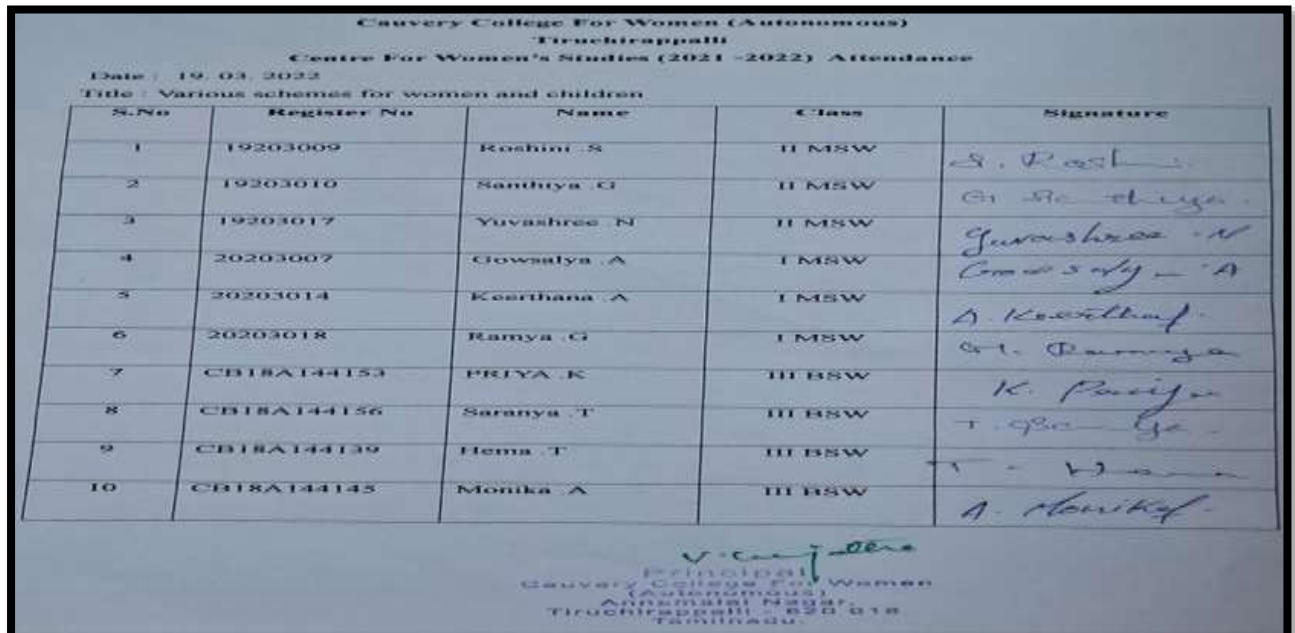 Cauvery College For Women (Autonomous)
Tiruchirappalli
Centre For Women's Studies (2021 -2022) Attendance
Date : 19. 03. 2022
Title : Various schemes for women and children
S.No Register No Name Class Signature
1 19203009 Roshini .S II MSW S. Roshni
2 19203010 Santhiya .G II MSW G.
3 19203017 Yuvashree .N II MSW Yuvashree .N
4 20203007 Gowsalya .A I MSW A
5 20203014 Keerthana .A I MSW A. Keerthana
6 20203018 Ramya .G I MSW G. Ramya
7 CB18A144153 PRIYA .K III BSW K. Priya
8 CB18A144156 Saranya .T III BSW T.
9 CB18A144139 Hema .T III BSW T. Hema
10 CB18A144145 Monika .A III BSW A. Monika
Principal
Cauvery College For Women
(Autonomous)
Annamalai Nagar,
Tiruchirappalli - 620 018
Tamilnadu.